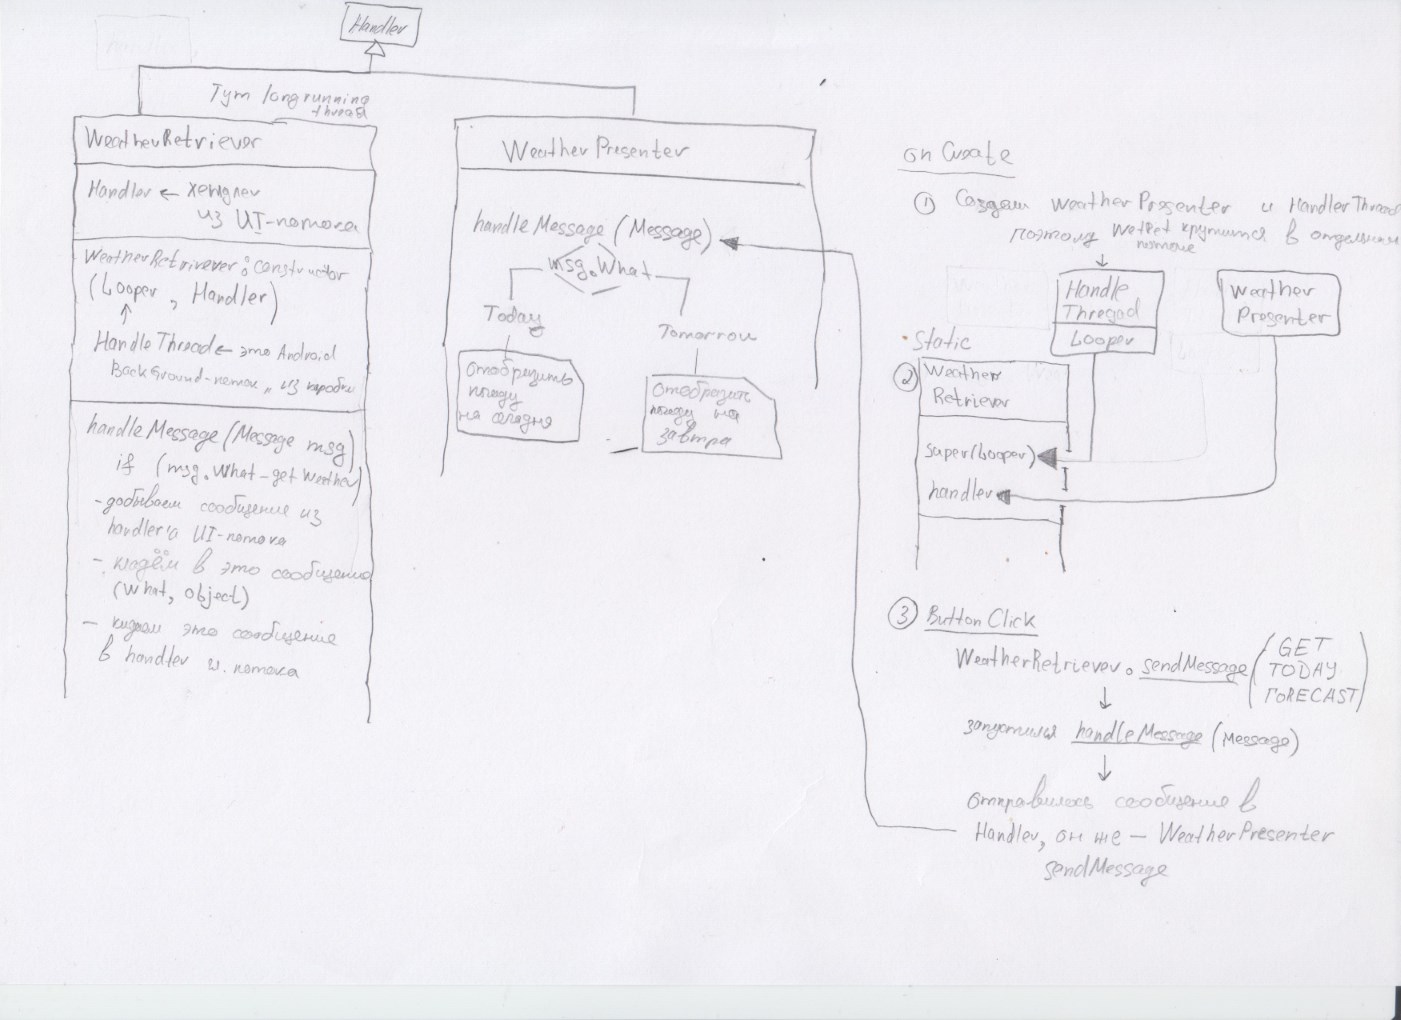 Handler
Тут longrunning
thread
WeatherRetriever
Handler ← хендлер
из UI-потока
WeatherRetriever: constructor
(Looper, Handler)
HandleThread ← это Android
BackGround-поток „из коробки
handleMessage(Message msg)
if (msg.What-get Weather)
- добываем сообщение из
handler'а UI-потока
- кладём в это сообщение
(What, object)
- кидаем это сообщение
в handler и. потока
WeatherPresenter
handleMessage(Message)
msg.What
Today
Tomorrow
отобразить
погоду
на сегодня
отобразить
погоду на
завтра
onCreate
① Создаём WeatherPresenter и HandlerThread
поэтому WetRet крутится в отдельном
потоке
Handle
Thread
Looper
Weather
Presenter
Static
② Weather
Retriever
super(Looper)
handler
③ ButtonClick
WeatherRetriever.sendMessage(GET
TODAY
FORECAST)
запустился handleMessage(Message)
отправилось сообщение в
Handler, он же — WeatherPresenter
sendMessage